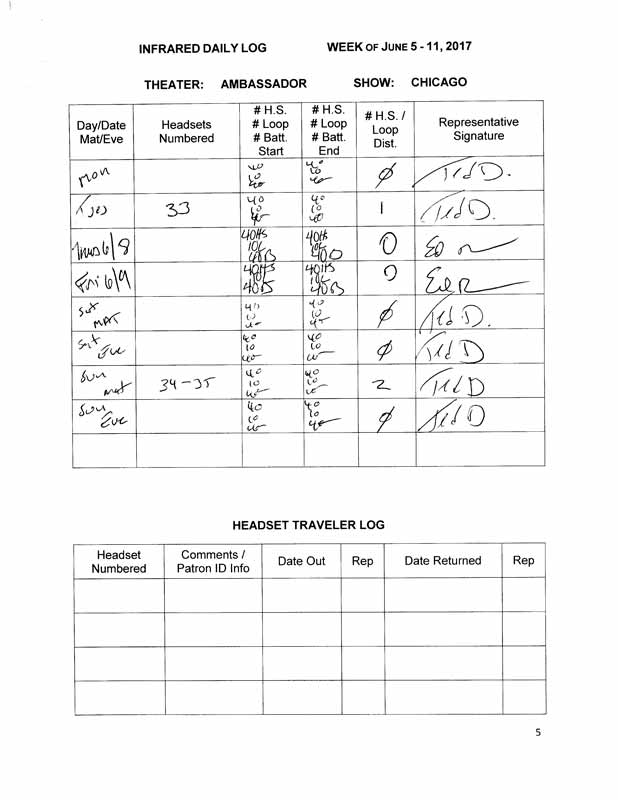 INFRARED DAILY LOG WEEK OF JUNE 5 - 11, 2017
THEATER: AMBASSADOR SHOW: CHICAGO
Day/Date Mat/Eve Headsets Numbered # H.S. # Loop # Batt. Start # H.S. # Loop # Batt. End # H.S. / Loop Dist. Representative Signature
Mon 40 10 40 40 10 40 Ø Ted D.
Tues 33 40 10 40 40 10 40 1 Ted D.
Thurs 6/8 40HS 10L 40B 40HS 10L 40B 0
Fri 6/9 40HS 40B 40HS 40B 0
Sat Mat 40 10 40 40 10 40 Ø Ted D.
Sat Eve 40 10 40 40 10 40 Ø Ted D
Sun Mat 34-35 40 10 40 40 10 40 2 Ted D
Sun Eve 40 10 40 40 10 40 Ø Ted D
HEADSET TRAVELER LOG
Headset Numbered Comments / Patron ID Info Date Out Rep Date Returned Rep
5